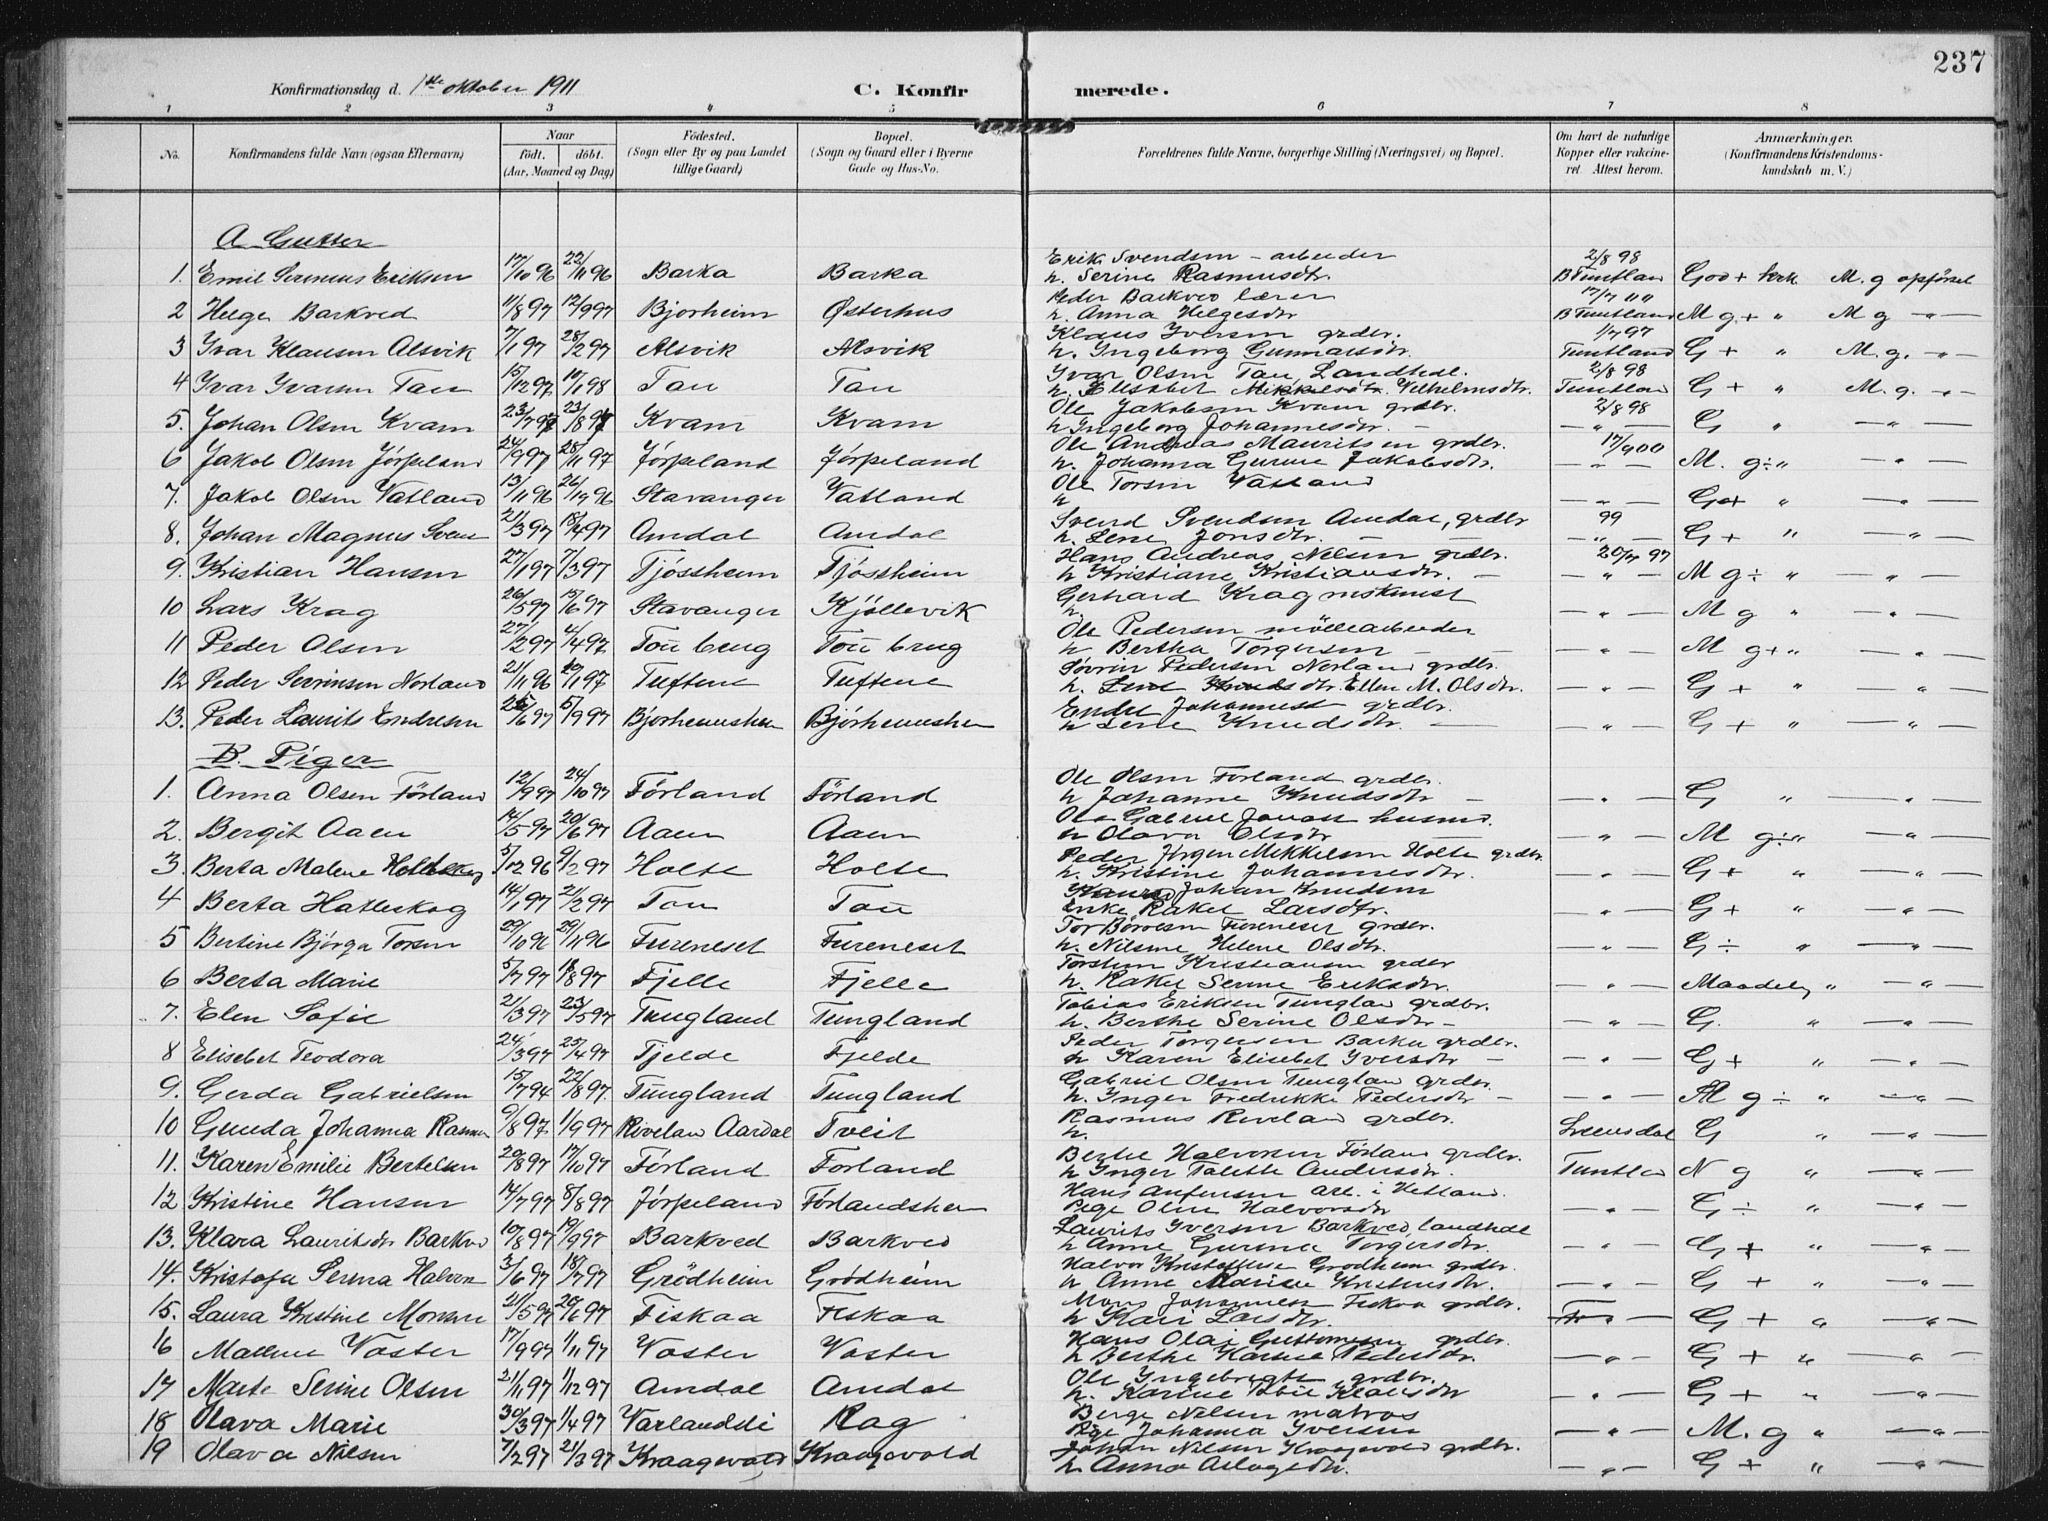 237
Konfirmationsdag d. 1ste oktober 1911 C. Konfirmerede.
1 2 3 4 5 6 7 8
No. Konfirmandens fulde Navn (ogsaa Efternavn) Naar født. døbt. (Aar, Maaned og Dag) Födested. (Sogn eller By og paa Landet tillige Gaard) Bopæl. (Sogn og Gaard eller i Byerne Gade og Hus-No. Forældrenes fulde Navne, borgerlige Stilling (Næringsvei) og Bopæl. Om havt de naturlige Kopper eller vakcineret. Attest herom. Anmærkninger. (Konfirmandens Kristendomskundskab m. V.)
A Gutter
1. Emil Serenius Eriksen 17/10 96 22/11 96 Barka Barka Erik Svendsen - arbeider h. Serine Rasmusdtr 2/8 98 B Tuntland God + kirk M. g opförsel
2 Helge Barkved 11/8 97 12/9 97 Bjorheim Østerhus Peder Barkved lærer h. Anna Helgesdtr B Tuntland M g + " M g - " -
3 Ivar Klausen Alsvik 7/1 97 28/2 97 Alsvik Alsvik Klaus Iversen grdbr. h. Ingeborg Gunnarsdtr. 1/7 97 Tuntland G + " M. g. - " -
4 Ivar Ivarsen Tau 15/12 97 10/1 98 Tau Tau Ivar Olsen Tau Landhdl. h. Elisabet Mikkelsdtr. Vilhelmsdtr. 2/8 98 Tuntland G + " M. g. - " -
5. Johan Olsen Kvam 23/7 97 23/8 97 Kvam Kvam Ole Jakobsen Kvam grdbr. h Ingeborg Johannesdtr. 2/8 98 - " - G " - " -
6 Jakob Olsen Jörpeland 24/9 97 28/11 97 Jörpeland Jörpeland Ole Andreas Mauritsen grdbr. h. Johanna Gurine Jakobsdtr. 17/9 00 - " - M. g ÷ " - " -
7. Jakob Olsen Vatland 13/11 96 26/12 96 Stavanger Vatland Ole Torsen Vatland h - " - G + " - " -
8. Johan Magnus Sven 21/3 97 18/4 97 Amdal Amdal Svend Svendsen Amdal, grdbr h. Lene Jonsdtr. 99 - " - G + " - " -
9. Kristian Hansen 27/1 97 7/3 97 Tjössheim Tjössheim Hans Andreas Nilsen grdbr. h Kristiane Kristiansdtr. 20/7 97 - " - M g ÷ " - " -
10 Lars Krag 26/5 97 15/6 97 Stavanger Kjöllevik Gerhard Krag h. - " - M g " - " -
11 Peder Olsen 27/2 97 4/4 97 Tou brug Tou brug Ole Pedersen möllearbeider h Bertha Torgersen - " - M g + " - " -
12 Peder Serinsen Norland 21/11 96 10/1 97 Tuftene Tuftene Sörrin Pedersen Norland grdbr. h. Lene Knudsdtr. Ellen M. Olsdtr. - " - G + " - " -
13. Peder Laurits Endresen 25/6 97 5/9 97 Bjorheimshei Bjørheimshei Endre Johannes grdbr. h Lene Knudsdtr. - " - G + " - " -
B. Piger
1. Anna Olsen Förland 12/9 97 24/10 97 Förland Förland Ole Olsen Forland grdbr. h Johanne Knudsdtr - " - G " - " -
2. Bergit Aaen 14/5 97 20/6 97 Aaen Aaen Ole Gabriel Jonass husmd. h Olava Olsdtr - " - M g ÷ " - " -
3. Berta Malene 5/12 96 9/2 97 Holte Holte Peder Jörgen Mikkelsen Holte grdbr. h. Kristine Johannesdtr. - " - G + " - " -
4 Berta Hatleskog 14/1 97 21/2 97 Tou Tou Johan Knudsen Enke Rakel Larsdtr. - " - G + " - " -
5 Bertine Bjørga Torsen 29/10 96 29/11 96 Fureneset Fureneset Tor Börresen Fureneset grdbr. h. Nilsine Helene Olsdtr. - " - G ÷ " - " -
6 Berta Marie 5/7 97 /8 97 Fjelle Fjelle Torstein Kristiansen grdbr h. Rakel Serine Eriksdtr. - " - Maadelig " - " -
7. Elen Sofie 21/3 97 23/5 97 Tungland Tungland Tobias Eriksen Tunglan grdbr. h. Berthe Serine Olsdtr - - " - G. " - " -
8 Elisebet Teodora 24/3 97 25/4 97 Fjelde Fjelde Peder Torgersen Barka grdbr. h Karen Elisebet Iversdtr - " - G + " - " -
9. Gerda Gabrielsen 15/7 94 22/8 97. Tungland Tungland Gabriel Olsen Tunglan grdbr. h. Inger Fredrikke Pedersdtr - - " - M g ÷ " - " -
10 Gunda Johanna Rasmus 9/8 97. 1/9 97 Rivelan Aardal Tveit Rasmus Rivelan grdbr. h. G " - " -
11. Karen Emilie Bertelsen 20/8 97 17/10 97 Förland Forland Bertel Halvorsen Förlan grdbr. h Inger Talette Andersdtr. Tuntlan N g " - " -
12 Kristine Hansen 14/7 97 8/8 97 Jörpeland Förlandshei Hans Anfensen arb. i Vetland. Pige Oline Halvorsdtr - " - G ÷ " - " -
13. Klara Lauritsdtr Barkve 10/8 97 19/9 97 Barkved Barkved Laurits Iversen Barkved, landhdl h Anne Gurina Torgersdtr. - " - G + " - " -
14. Kristofa Serina Halvor 3/6 97 18/7 97 Grödheim Grödheim Halvor Kristoffersen Grodheim grdbr. h Anne Marine Kristensdtr. - " - G + " - " -
15. Laura Kristine Monsen 21/5 97 20/6 97 Fiskaa Fiskaa Mons Johannesen Fiskaa grdbr. h Kari Larsdtr. - " - G + " - " -
16 Malene Vaster 17/9 97 1/11 97 Vaster Vaster Hans Olai Guttormsen grdbr. h Berthe Karine Pedersdtr. - " - G + " - " -
17 Marta Serine Olsen 21/11 97 1/12 97 Amdal Amdal Ole Ingebregts grdbr. h. Karine Klausdtr - " - G + " - " -
18 Olava Marie 30/3 97 1/4 97 Rag Berge Nilsen matros Pige Johanna Iversen - " - M. g " - " -
19 Olava Nilsen 7/2 97 21/3 97 Kraagevold Kraagevold Johan Nilsen Kraagevold grdbr. h Anna Aslagsdtr. - " - G + " - " -